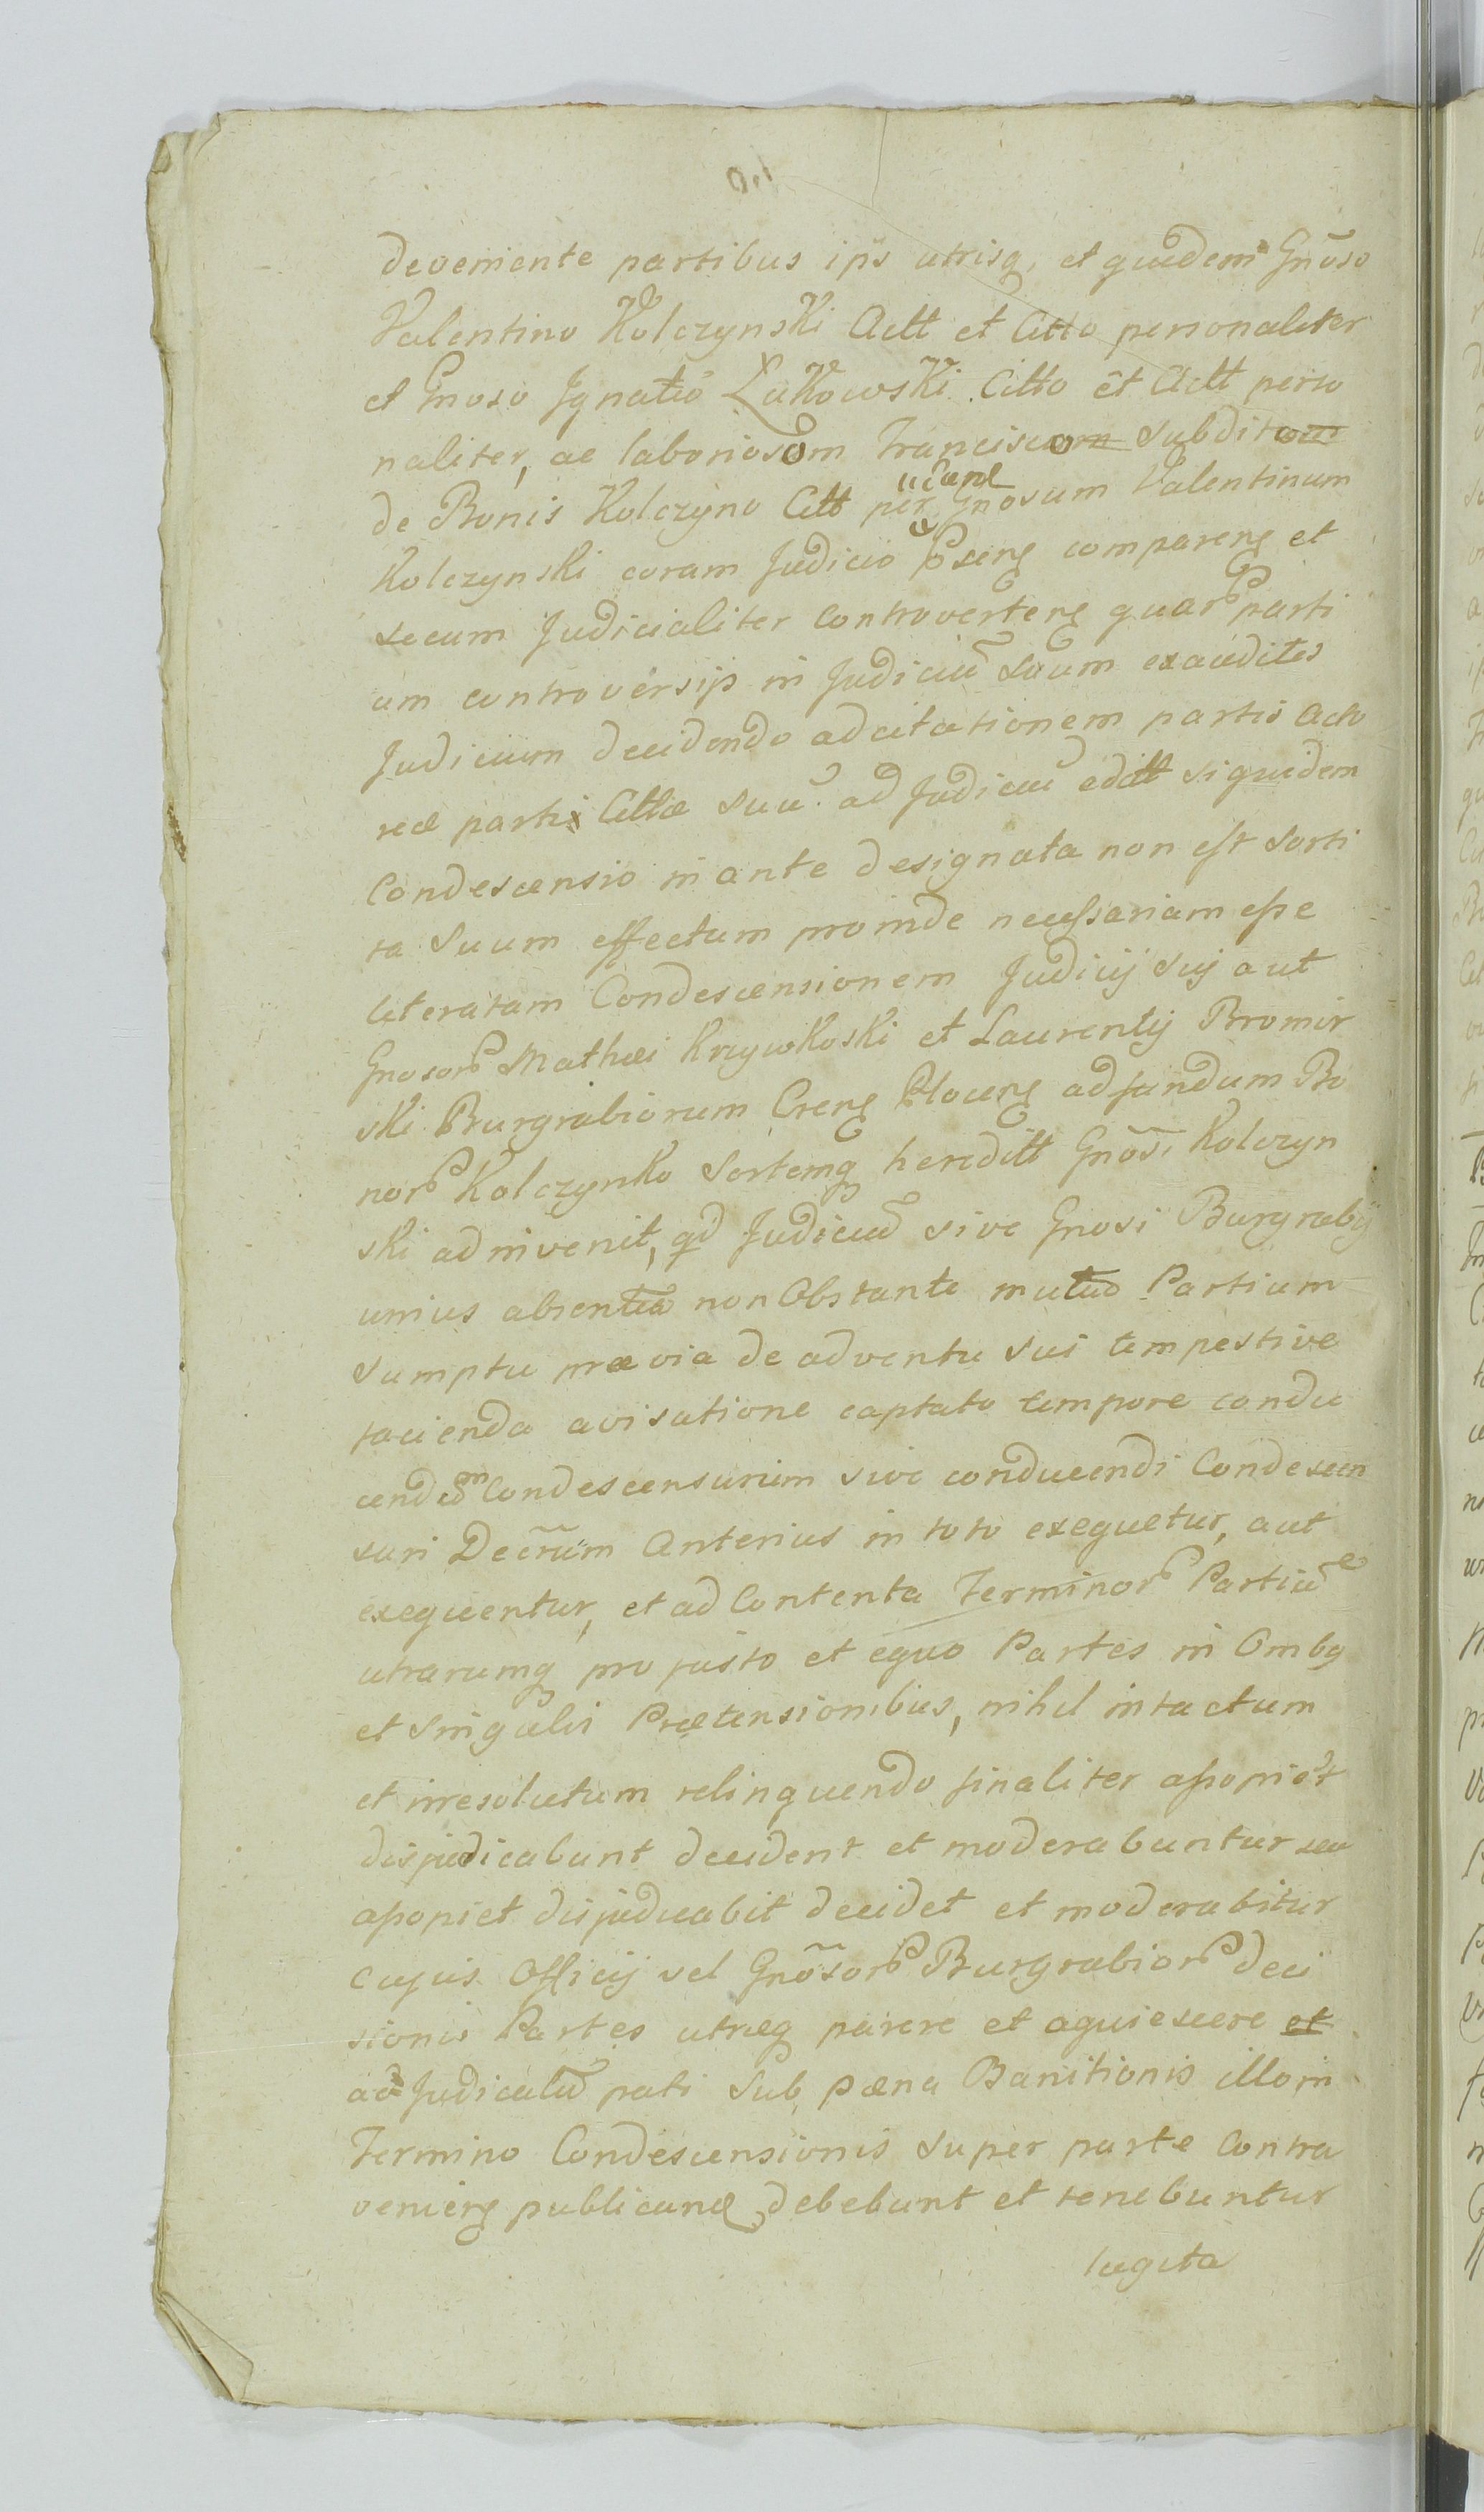 deveniente partibus ijs utrisq, et quidem Gnoso
Valentino Kolczynski Actt et Citto personaliter
et Gnoso Ignatio Łukowski Citto et Actt perso
naliter, ac laboriosom Francisco Subdito
de Bonis Kolczyno Citt per Gnosum Valentinum
Kolczynski coram Judicio pseng compareng et
secum Judicialiter Controverteng quar parti
um controversijs in Judiciu Suum exauditis
Judicium decidendo ad citationem partis Acto
reæ parti Cittæ Suu ad Judiciu editt siquidem
Condescensio in ante designata non est Sorti
ta Suum effectum proinde necessariam esse
literatam Condescensionem Judicij Suj aut
Gnosor Mathæi Krzywkoski et Laurentij Bromir
ski Burgrabiorum Creng Ploceng ad fundum Bo
nor Kolczynko Sortemq hereditt Gnosi Kolczyn
ski adinvenit, qd Judiciu sive Gnosi Burgrabij
unius absentia non Obstante mutuo Partium
Sumptu prævia de adventu Sui tempestive
facienda avisatione captato tempore condu
cendum Condescensurum sive conducendi Condescen
suri Decrum Anterius in toto exequetur, aut
exequentur, et ad Contenta Terminor Partiu
utrarumq pro justo et equo Partes in Ombq
et Singulis Prætensionibus, nihil intactum
et irresolutum relinquendo finaliter assopiet
disjudicabunt decident et moderabuntur seu
assopiet disjudicabit decidet et moderabitur
cujus Officij vel Gnosor Burgrabior deci
sionis Partes utræq parere et aquiescere et
ad Judicatu pati Sub pæna Banitionis illo in
Termino Condescensionis Super parte Contra
venieng publicand debebunt et tenebuntur